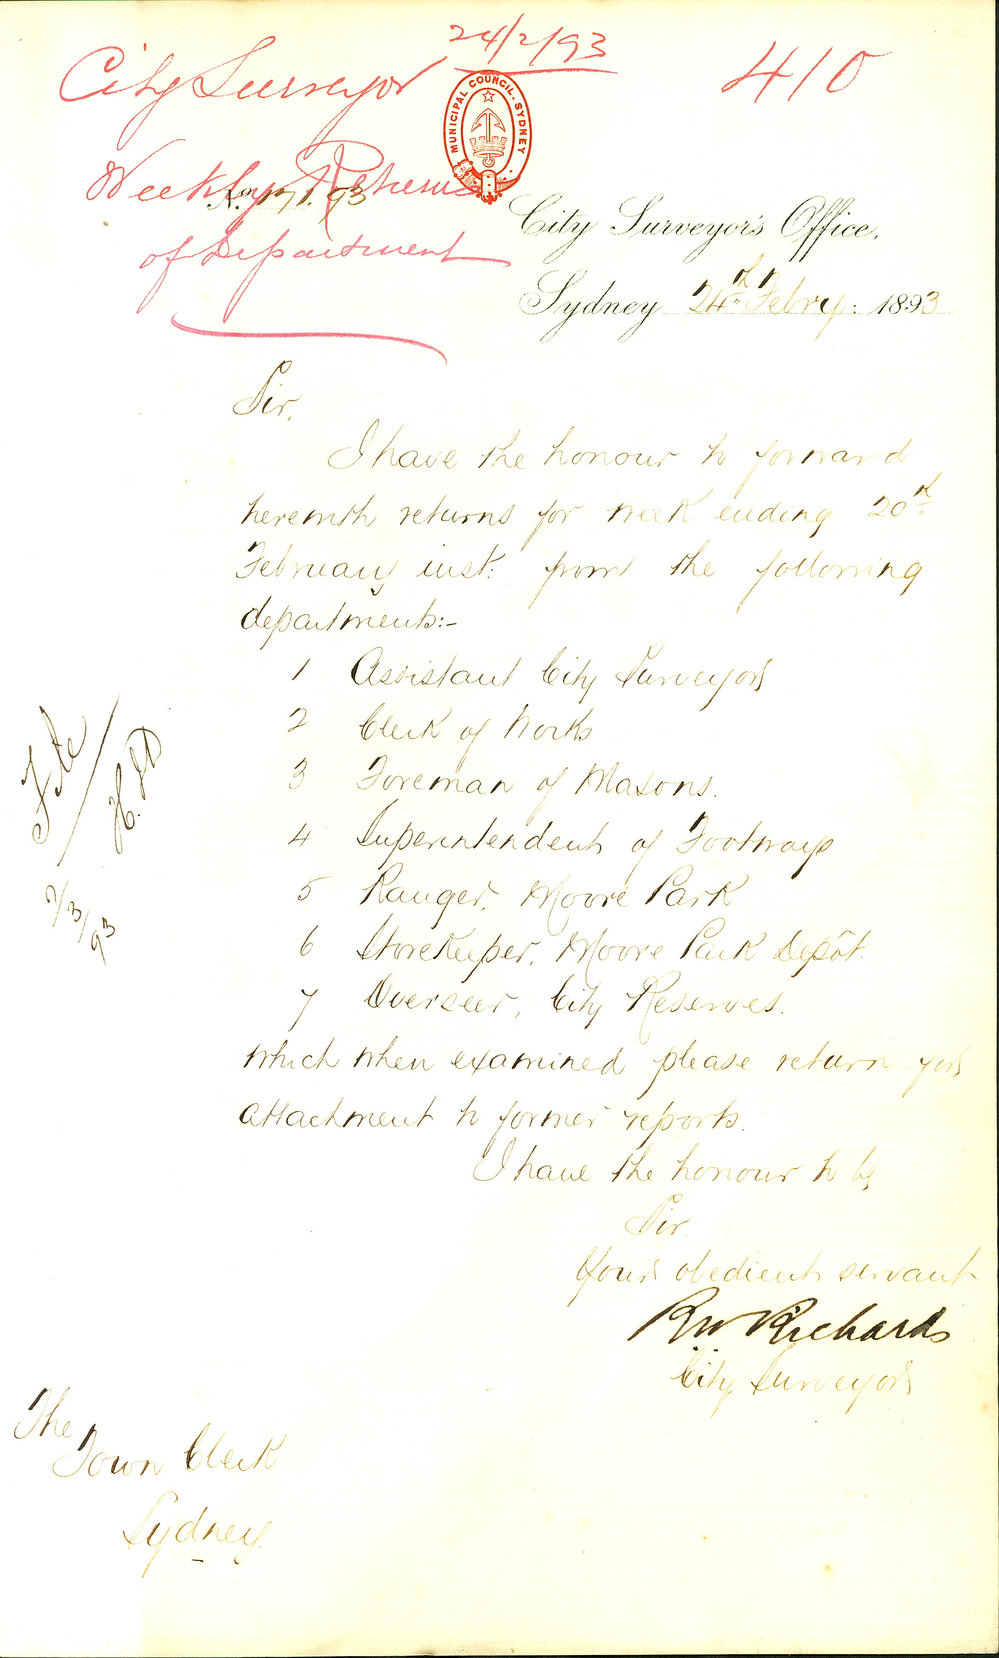 24/2/93
City Surveyor
410
MUNICIPAL COUNCIL. SYDNEY
Weekly Returns
of Department
No. 171.93
City Surveyor's Office,
Sydney 24th Febry: 1893
Sir,
I have the honour to forward
herewith returns for week ending 20th
February inst: from the following
departments:-
1 Assistant City Surveyor
2 Clerk of Works
3 Foreman of Masons.
4 Superintendent of Footways
5 Ranger, Moore Park
6 Storekeeper, Moore Park Depôt.
7 Overseer, City Reserves.
which when examined please return for
attachment to former reports.
I have the honour to be
Sir.
Your obedient servant
RW Richards
City Surveyor
File
/3/93
The
Town Clerk
Sydney.